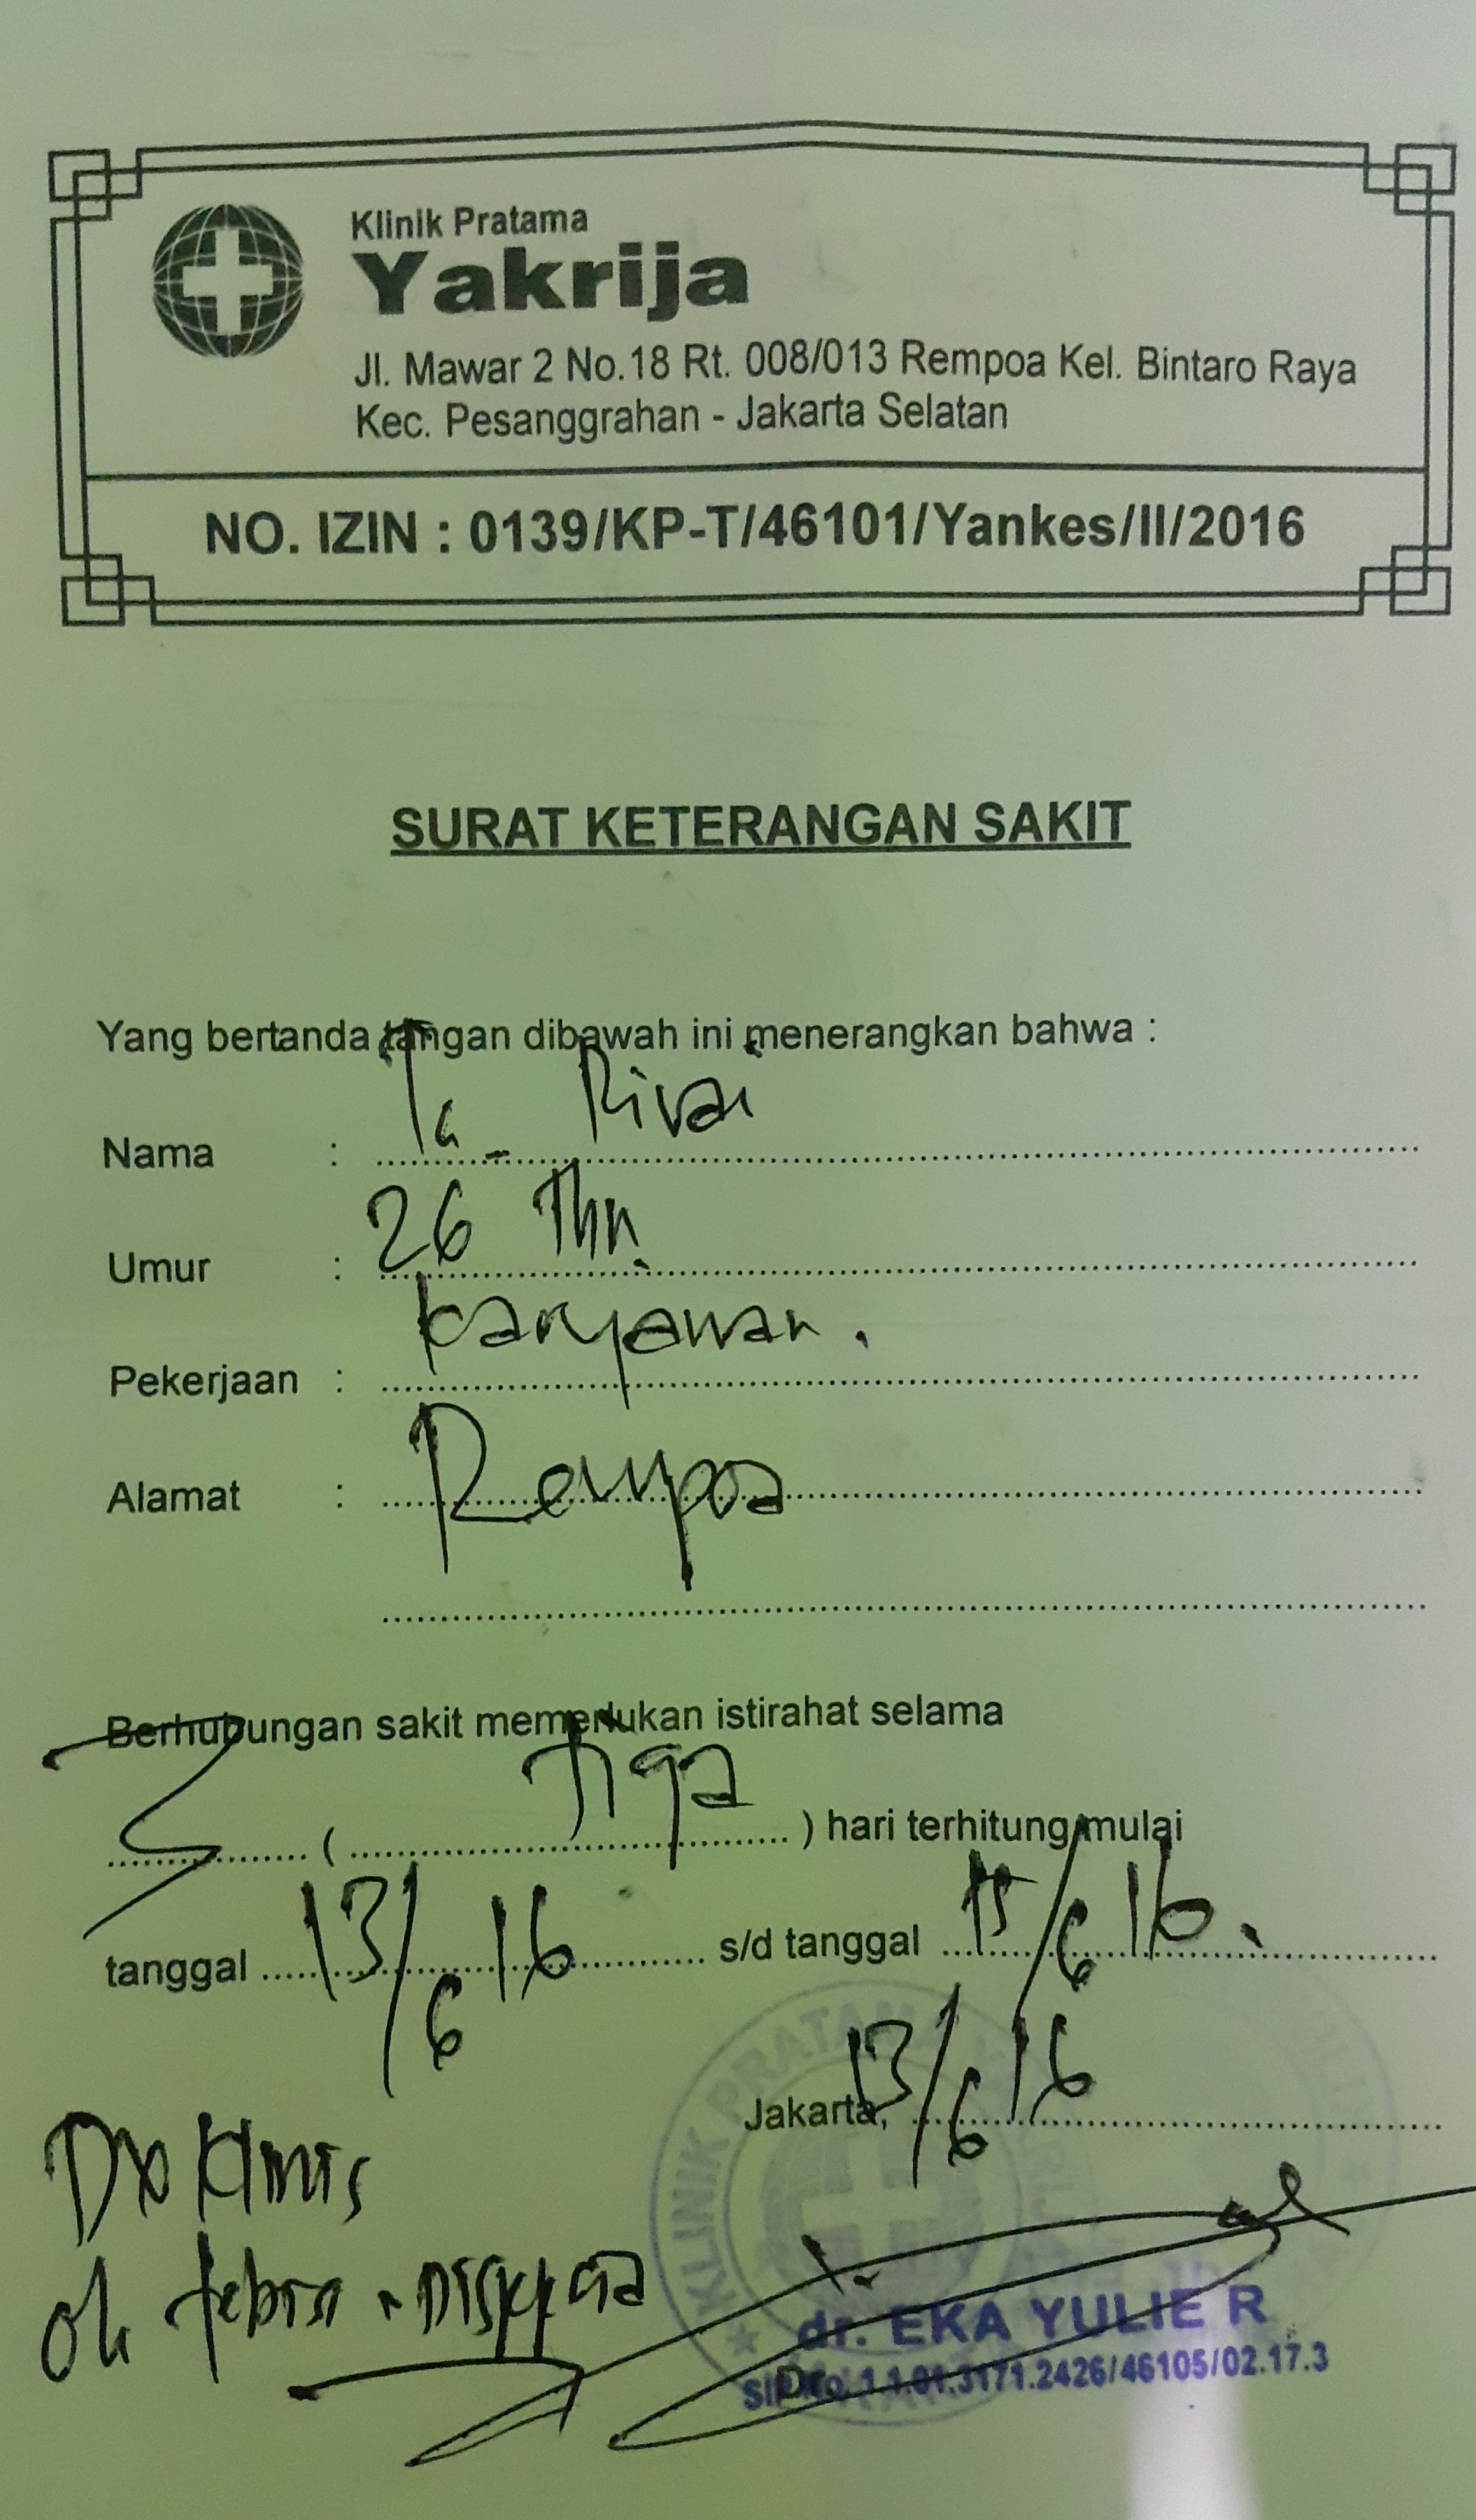 Klinik Pratama
Yakrija
Jl. Mawar 2 No.18 Rt. 008/013 Rempoa Kel. Bintaro Raya
Kec. Pesanggrahan - Jakarta Selatan
NO. IZIN : 0139/KP-T/46101/Yankes/II/2016
SURAT KETERANGAN SAKIT
Yang bertanda tangan dibawah ini menerangkan bahwa :
Nama : Rivai
Umur : 26 Thn.
Pekerjaan : karyawan.
Alamat : Rempoa
Berhubungan sakit memerlukan istirahat selama
3 ( Tiga ) hari terhitung mulai
tanggal 13/6 16 s/d tanggal 15/6 16.
Jakarta, 13/6 16
Dx Klinis
KLINIK PRATAMA
dr. EKA YULIE R
SIP No. 1.1.01.3171.2426/46105/02.17.3